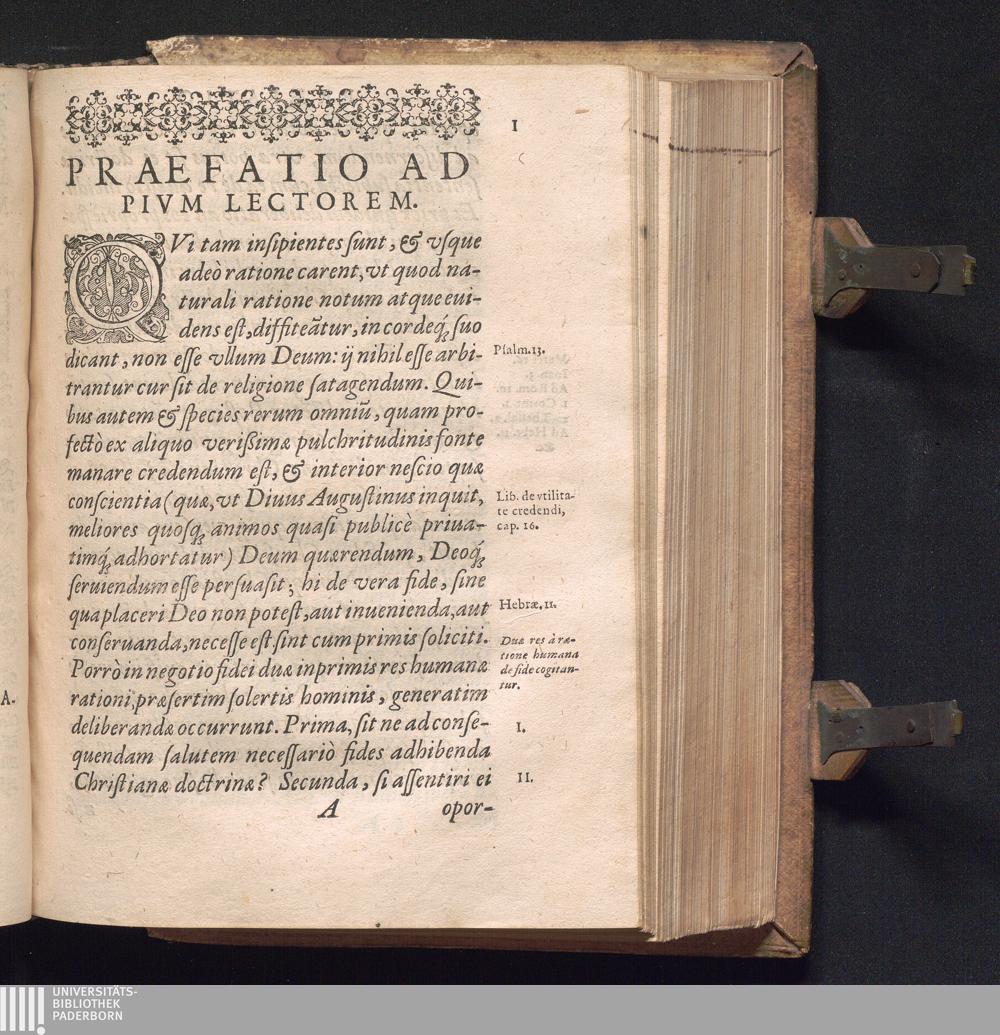 1
PRAEFATIO AD
PIVM LECTOREM.
QVi tam inſipientes ſunt, & vſque
adeò ratione carent, vt quod na-
turali ratione notum atque eui-
dens eſt, diffiteãtur, in cordeq́; ſuo
dicant, non eſſe vllum Deum: ij nihil eſſe arbi-
trantur cur ſit de religione ſatagendum. Qui-
bus autem & ſpecies rerum omniũ, quam pro-
fectò ex aliquo verißimæ pulchritudinis fonte
manare credendum eſt, & interior neſcio quæ
conſcientia (quæ, vt Diuus Auguſtinus inquit,
meliores quoſq; animos quaſi publicè priua-
timq́; adhortatur) Deum quærendum, Deoq́;
ſeruiendum eſſe perſuaſit; hi de vera fide, ſine
qua placeri Deo non poteſt, aut inuenienda, aut
conſeruanda, neceſſe eſt ſint cum primis ſoliciti.
Porrò in negotio fidei duæ inprimis res humanæ
rationi, præſertim ſolertis hominis, generatim
deliberandæ occurrunt. Prima, ſit ne ad conſe-
quendam ſalutem neceſſariò fides adhibenda
Chriſtianæ doctrinæ? Secunda, ſi aſſentiri ei
A opor-
Pſalm. 13.
Lib. de vtilita-
te credendi,
cap. 16.
Hebræ. 11.
Duæ res à ra-
tione humana
de fide cogitan-
tur.
I.
II.
A.
UNIVERSITÄTS-
BIBLIOTHEK
PADERBORN